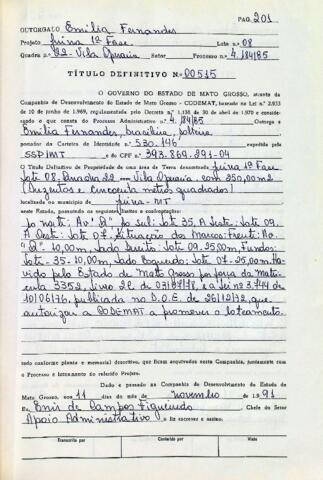 PAG. 201
OUTORGADO Emilia Fernandes
Projeto Juina 1ª Fase Lote n.º 08
Quadra n.º 22-Vila Operaria Setor Processo n.º 4.184/85
TÍTULO DEFINITIVO N.º 00515
O GOVERNO DO ESTADO DE MATO GROSSO, através da
Companhia de Desenvolvimento do Estado de Mato Grosso - CODEMAT, baseado na Lei n.º 2.933
de 10 de junho de 1969, regulamentada pelo Decreto N.º 1.138 de 30 de abril de 1970 e consideran-
sendo o que consta do Processo Administrativo n.º 4.184/85 Outorga a
Emilia Fernandes, brasileira, solteira
portador da Carteira de Identidade n.º 530.146 expedida pela
SSP/MT e do CPF n.º 393.869.291-04
O Título Definitivo de Propriedade de uma área de Terra denominada Juina 1ª Fase
Lote 08, Quadra 22 - Vila Operaria com 250,00m2
(Duzentos e Cincoenta metros quadrados)
localizada no município de Juina-MT
neste Estado, possuindo os seguintes limites e confrontações:
Ao norte: Av. "D" ao sul: Lote 35. A Leste: Lote 09.
A Oeste: Lote 07. Situação dos Marcos: Frente: Av.
"D" 10,00m, Lado Direito: Lote 09-25,00m, Fundos:
Lote-35-10,00m, Lado Esquerdo: Lote 07-25,00m. Ha-
vido pelo Estado de Mato Grosso por força da Matri-
cula 3352, livro 2C de 03/07/78, e a Lei nº 3.744 de
10/06/76, publicada no D.O.E. de 26/12/78, que
autorizou a CODEMAT a promover o loteamento.
tudo conforme planta e memorial descritivo, que ficam arquivados nesta Companhia, juntamente com
o Processo e loteamento do referido Projeto.
Dado e passado na Companhia de Desenvolvimento do Estado de
Mato Grosso, aos 11 dias do mês de novembro de 1991
Eu, Enis de Campos Figueiredo Chefe do Setor
Apoio Administrativo o fiz escrever e assino.
Transcrito por Conferido por Visto